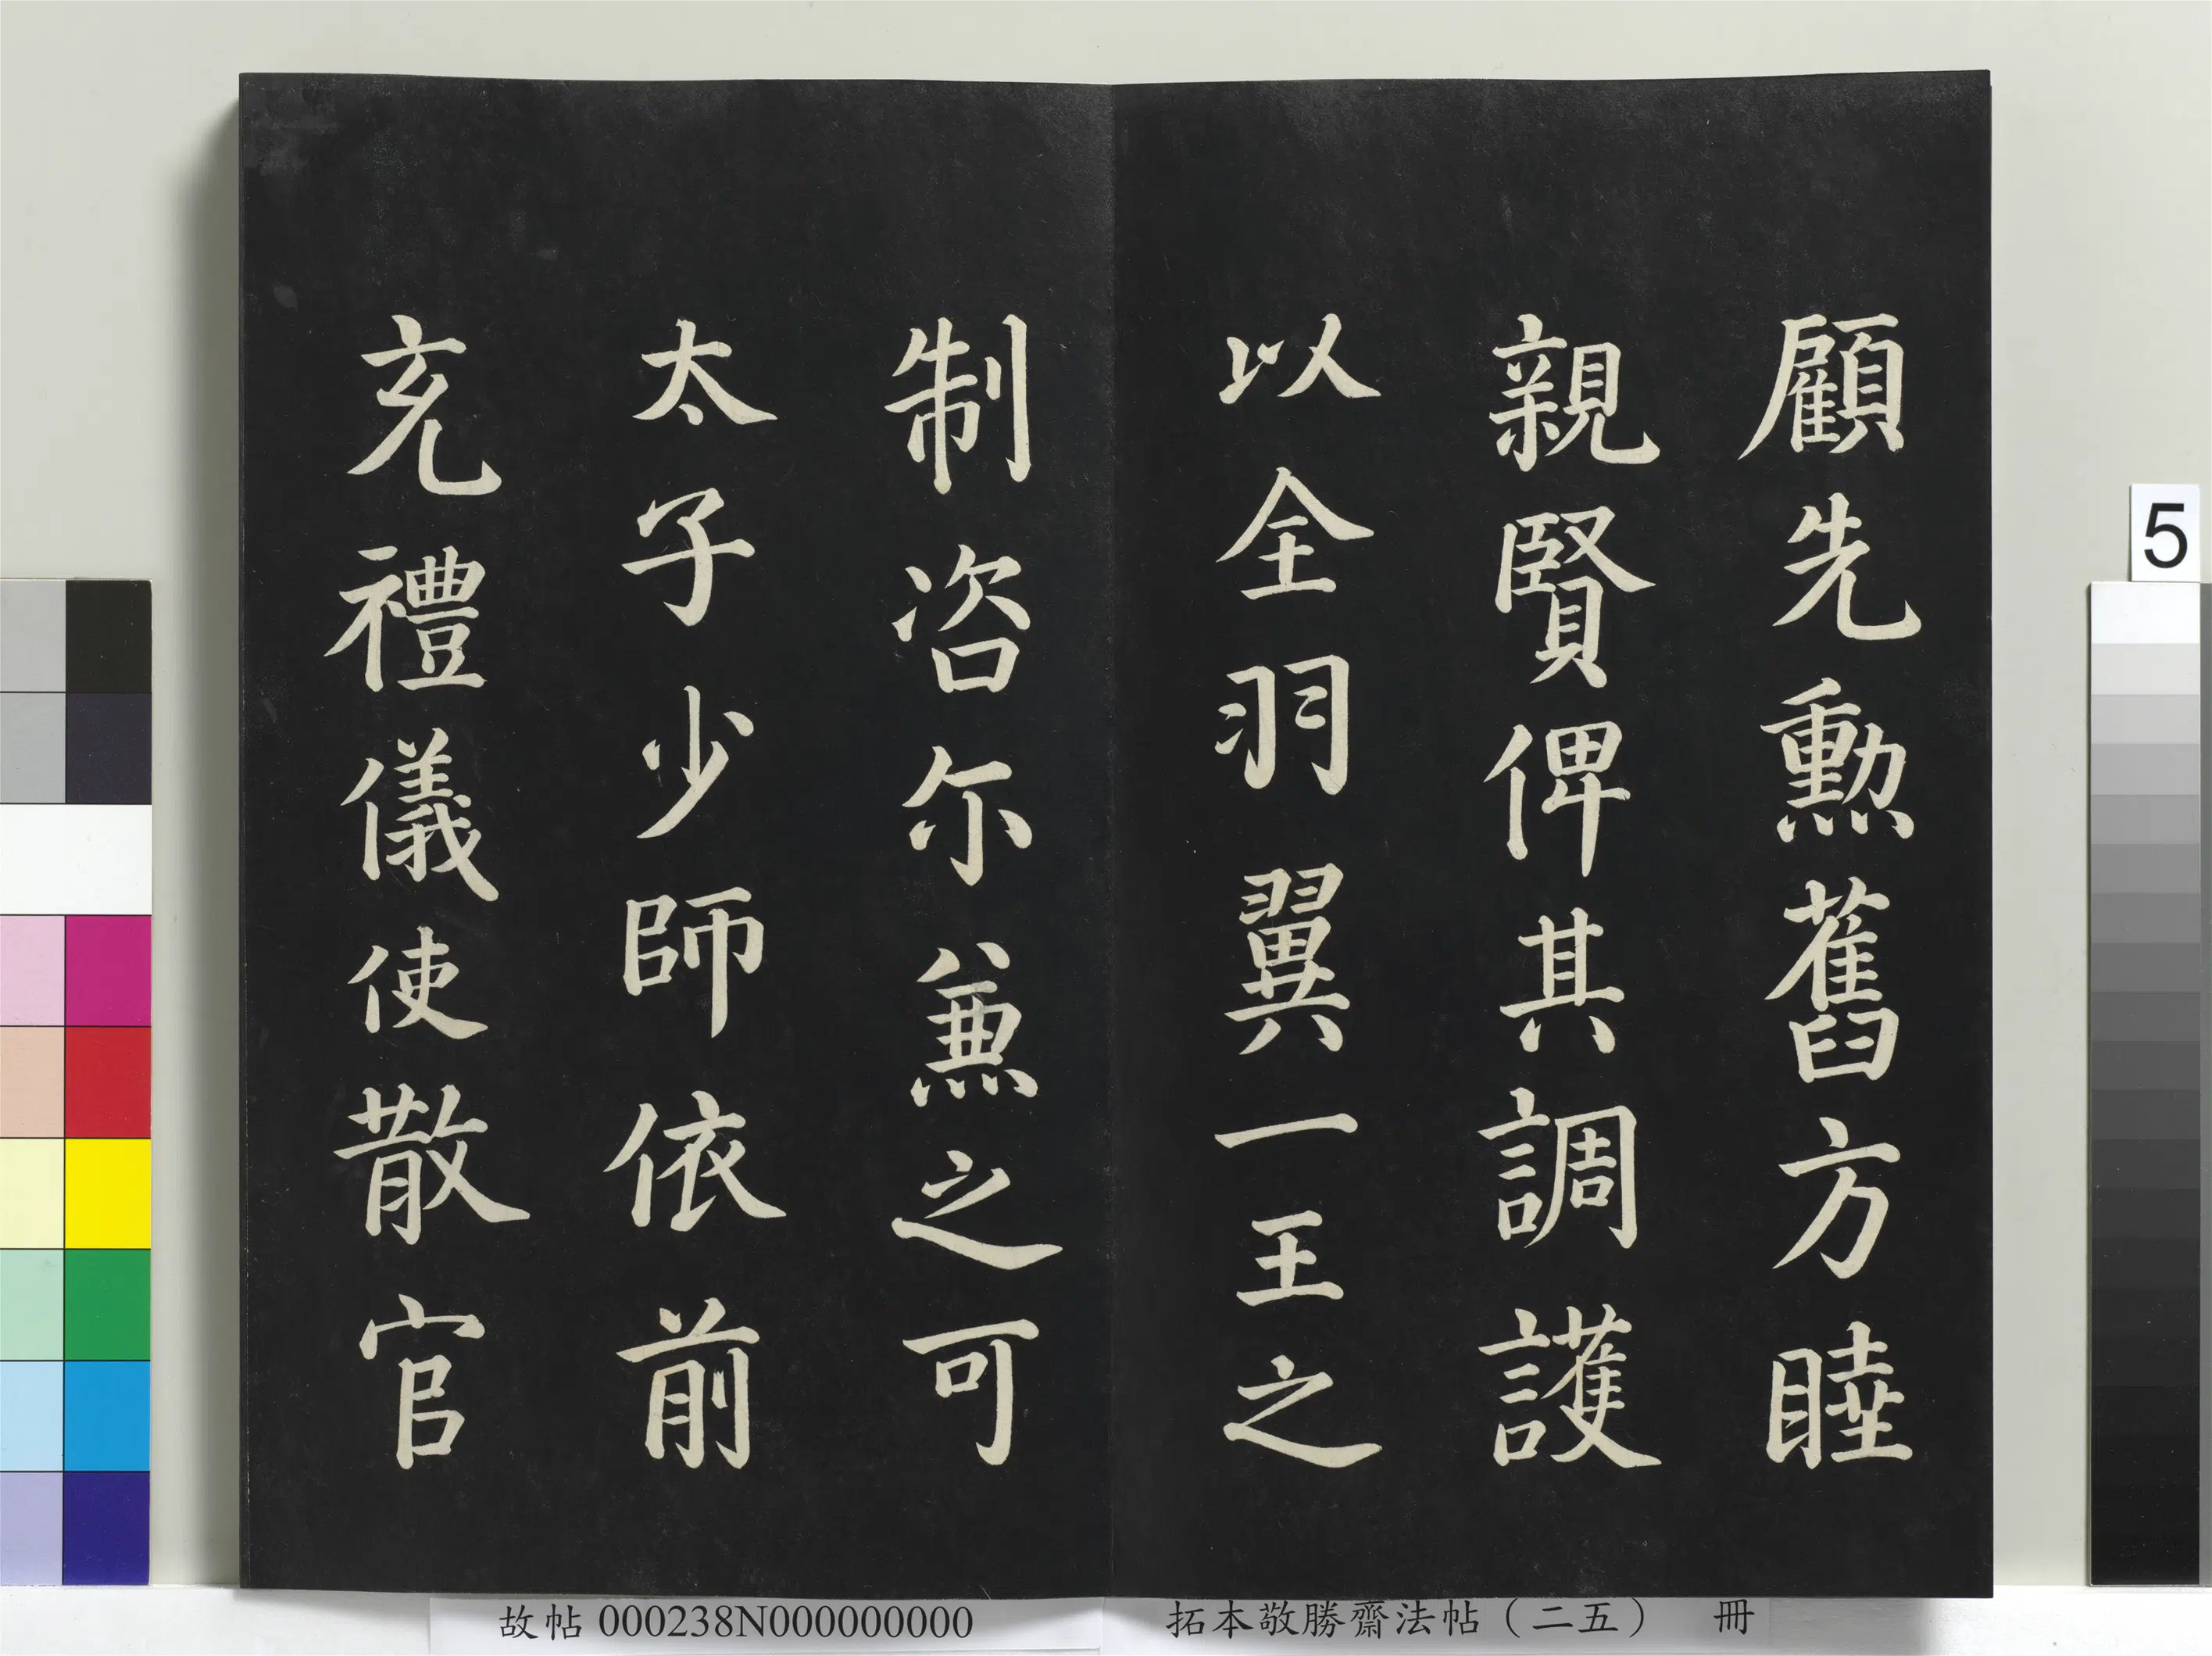 顧先勳舊方睦
親賢俾其調護
以全羽翼一王之
制咨尔兼之可
太子少師依前
充禮儀使散官
5
故帖 000238N000000000
拓本敬勝齋法帖(二五) 冊